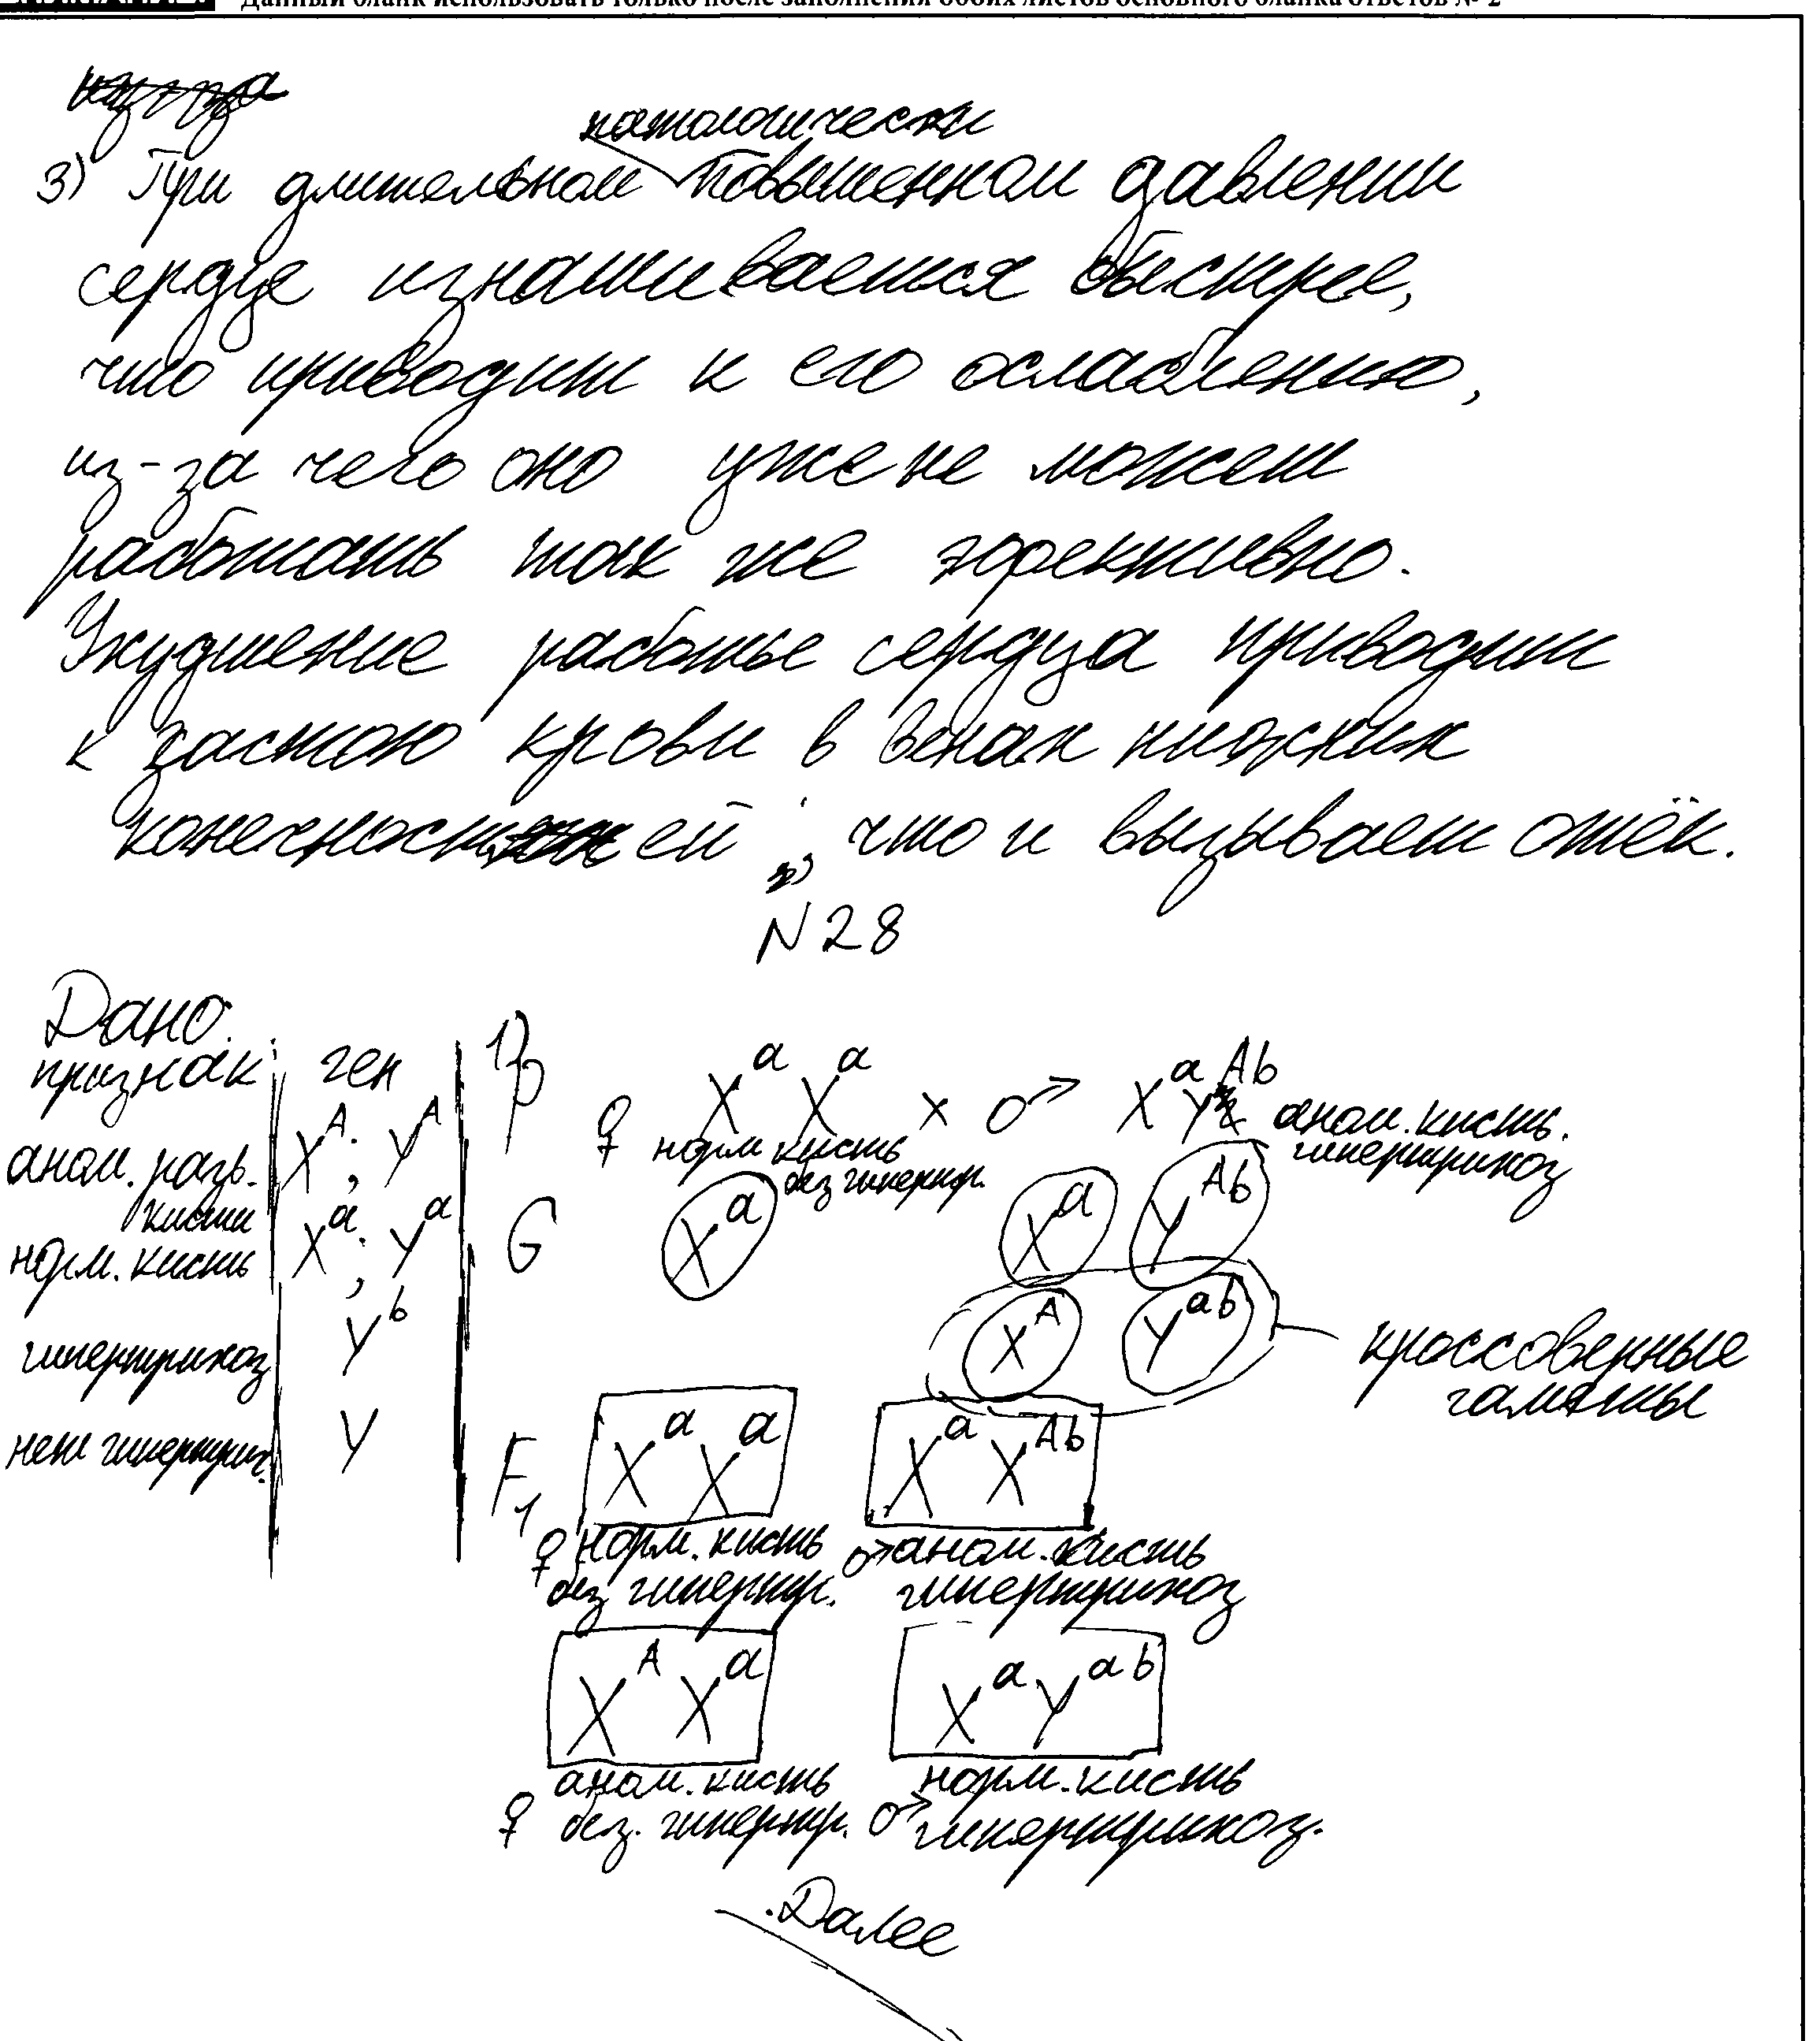 Данный бланк использовать только после заполнения обоих листов основного бланка ответов № 2
патологически
3) При длительном повышенном давлении
сердце изнашивается быстрее,
что приводит к его ослаблению,
из-за чего оно уже не может
работать так же эфективно.
Ухудшение работы сердца приводит
к застою крови в венах нижних
конечностей, что и вызывает отёк.
N 28
Дано:
признак | ген
аном. разв. кисти | X^A; Y^A
норм. кисть | X^a; Y^a
гипертрихоз | Y^b
нет гипертрих. | Y
1) P ♀ X^a X^a × ♂ X^a Y^Ab аном. кисть.
норм кисть без гипертр. гипертрихоз
G X^a X^a Y^Ab
X^A Y^ab кроссоверные гаметы
F1 X^a X^a X^a X^Ab
♀ норм. кисть ♂ аном. кисть
без гипертр. гипертрихоз
X^A X^a X^a Y^ab
аном. кисть норм. кисть
♀ без. гипертр. ♂ гипертрихоз.
Далее